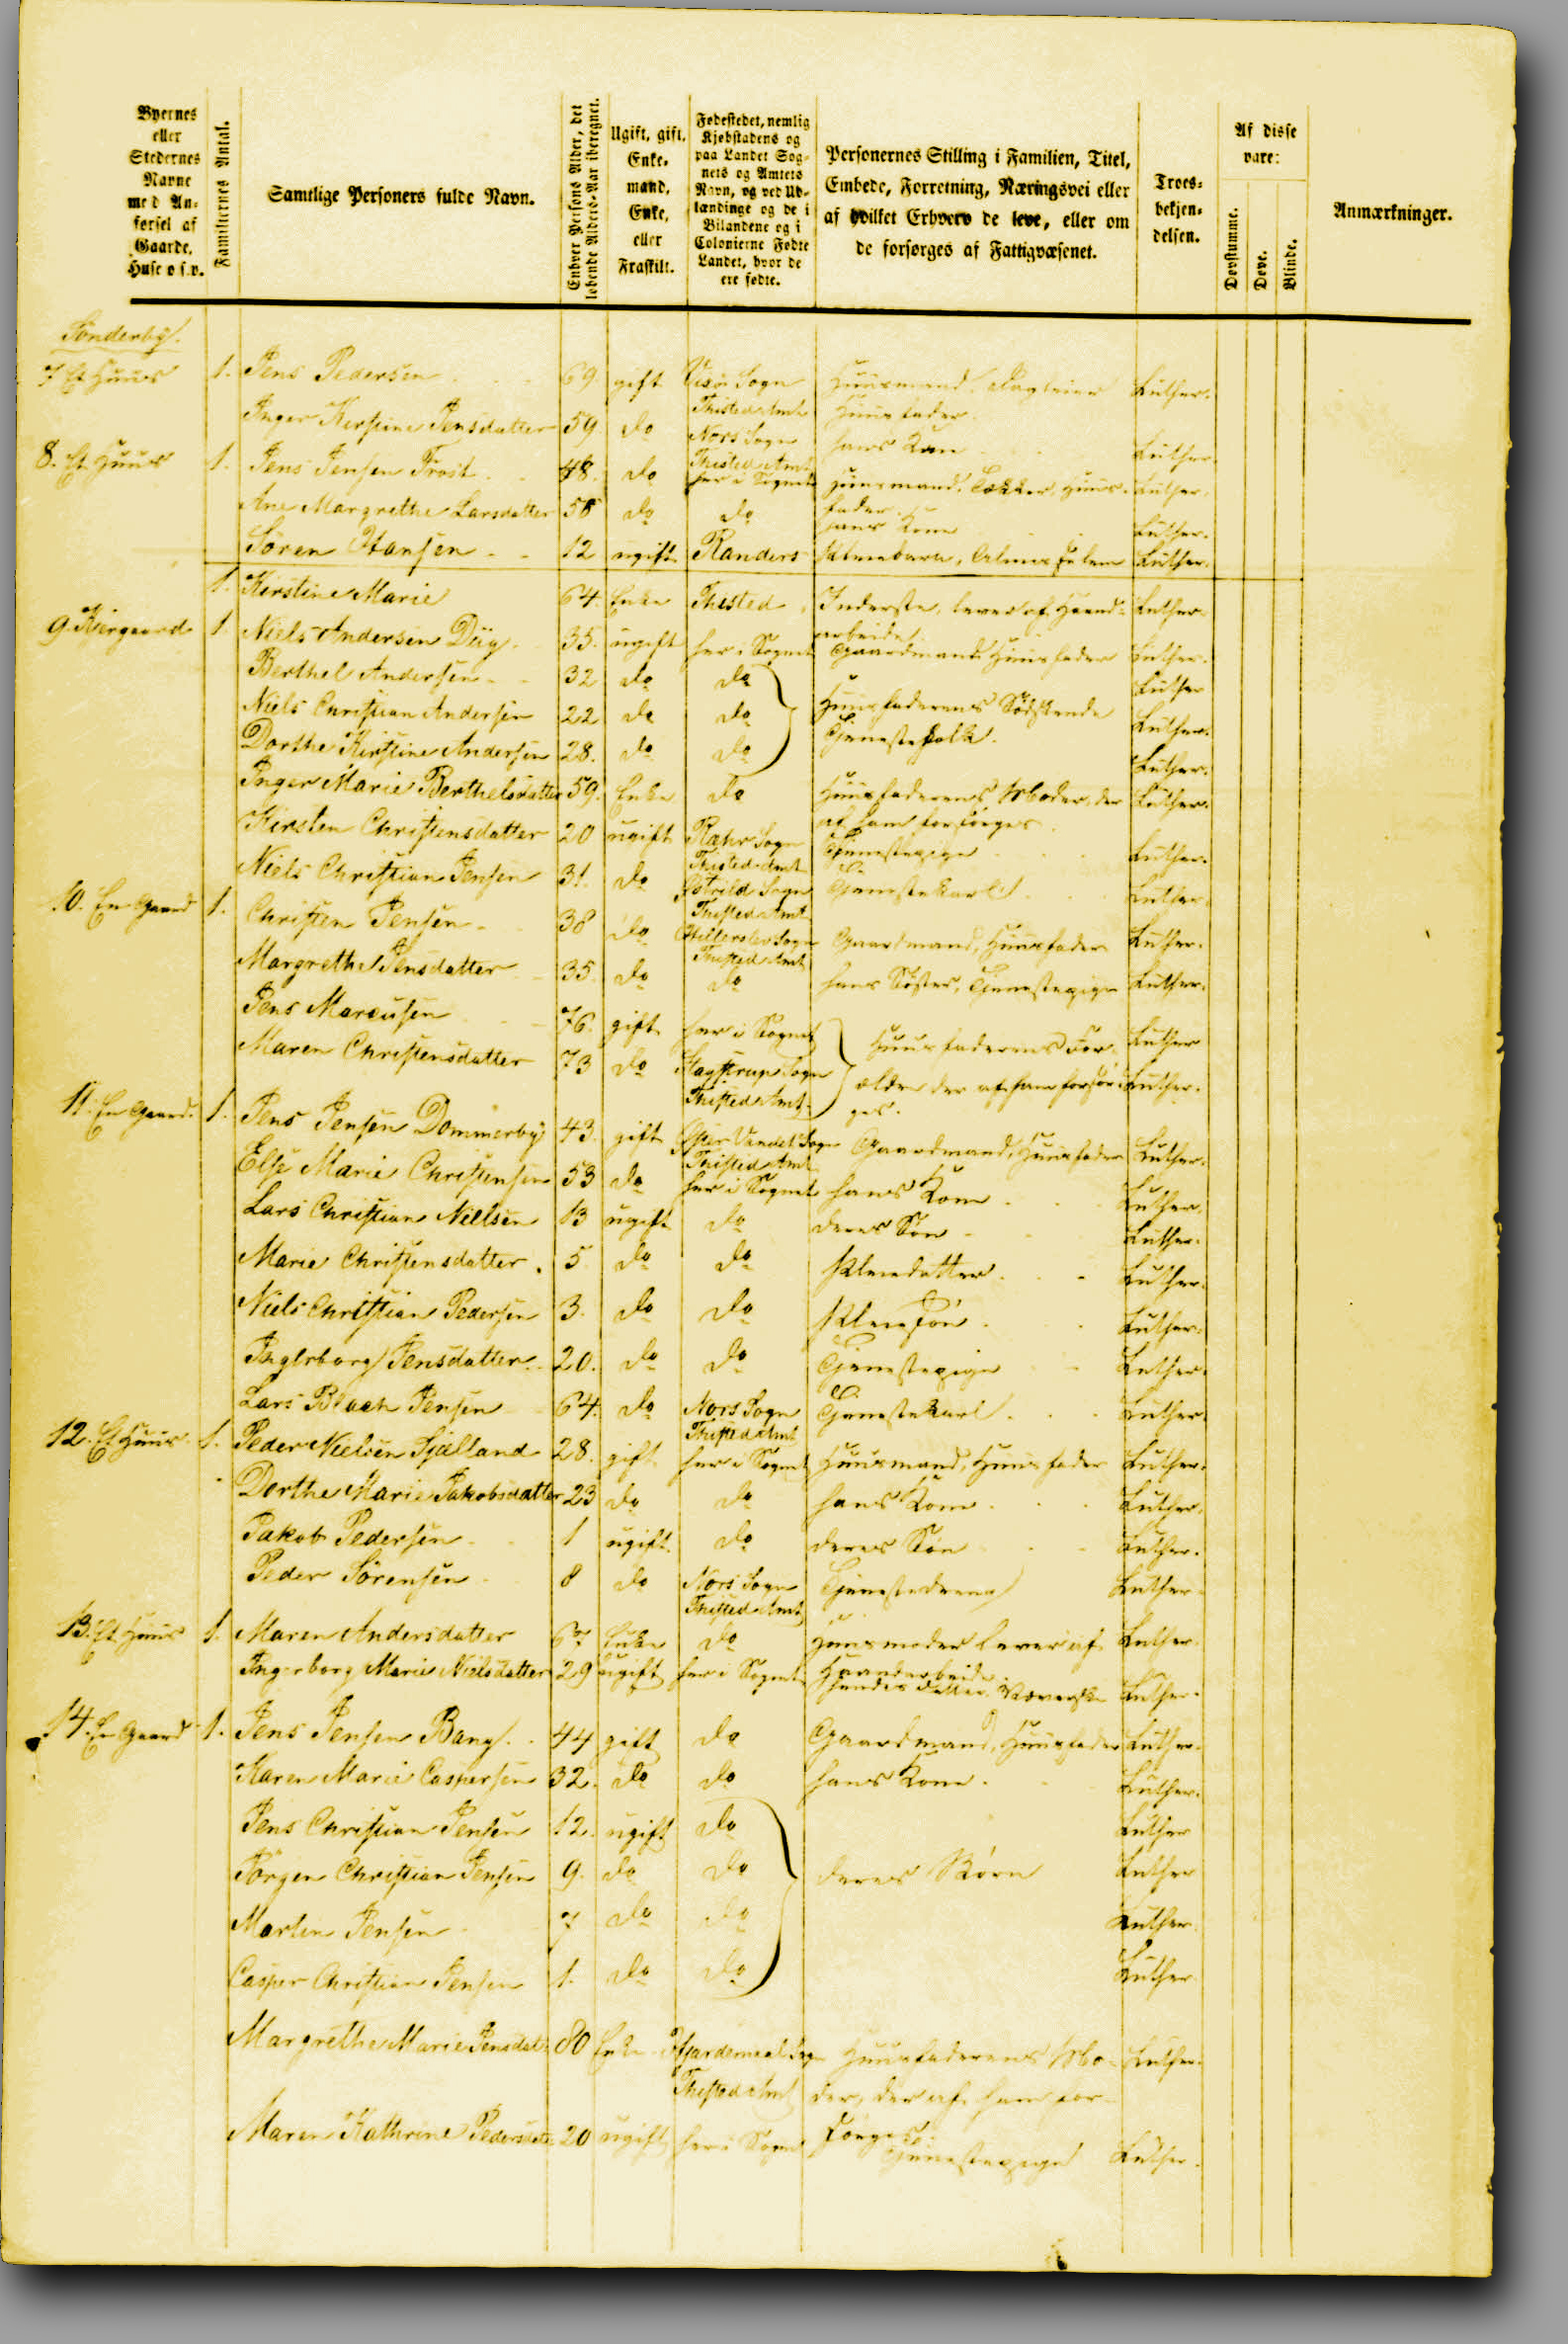 Byernes
eller
Stedernes
Navne
med An-
førsel af
Gaarde,
Huse o.s.v.
Familiernes Antal.
Samtlige Personers fulde Navn.
Enhver Persons Alder, det
løbende Alders-Aar iberegnet.
Ugift, gift,
Enke-
mand,
Enke,
eller
Fraskilt.
Fødestedet, nemlig
Kjøbstadens og
paa Landet Sog-
nets og Amtets
Navn, og ved Ud-
lændinge og de i
Bilandene og i
Colonierne Fødte
Landet, hvor de
ere fødte.
Personernes Stilling i Familien, Titel,
Embede, Forretning, Næringsvei eller
af hvilket Erhverv de leve, eller om
de forsørges af Fattigvæsenet.
Troes-
bekjen-
delsen.
Af disse
vare:
Døvstumme.
Døve.
Blinde.
Anmærkninger.
Sønderby.
7 Et Huus 1. Jens Pedersen 69. gift Sogn Huusmand, Luther.
Thisted Amt Huusfader.
Inger Kirstine Jensdatter 59 do Nors Sogn hans Kone Luther.
Thisted Amt
8. Et Huus 1. Jens Jensen Trost 48. do her i Sognet Huusmand, Huus- Luther.
fader.
Ane Margrethe Larsdatter do do hans Kone Luther.
Søren Hansen 12 ugift Randers Luther.
1. Kirstine Marie 64. Enke Thisted Inderste, lever af Haand- Luther.
arbeide.
9. Kirgaard 1. Niels Andersen Düg 35. ugift her i Sognet Gaardmand Huusfader Luther.
Berthel Andersen 32 do do Luther
Niels Christian Andersen 22 do do Huusfaderens Sødskende Luther.
Dorthe Kirstine Andersen 28. do do Tjenestefolk. Luther.
Inger Marie Berthelsdatter 59. Enke do Huusfaderens Moder, der Luther.
af ham forsørges.
Kirsten Christensdatter 20 ugift Ræhr Sogn Tjenestepige Luther.
Thisted Amt
Niels Christian Jensen 31. do Østrild Sogn Tjenestekarl Luther.
Thisted Amt
10. En Gaard 1. Christen Jensen 38 do Hillerslev Sogn Gaardmand, Huusfader Luther.
Thisted Amt
Margrethe Jensdatter 35 do do hans Søster, Tjenestepige Luther.
Jens Marcusen 76. gift her i Sognet Huusfaderens For- Luther
Maren Christensdatter 73 do Sogn ældre der af ham forsør- Luther.
Thisted Amt. ges.
11. En Gaard. 1. Jens Jensen Dommerby 43. gift Øster Vandet Sogn Gaardmand, Huusfader Luther.
Thisted Amt
Else Marie Christensen 53 do her i Sognet hans Kone Luther.
Lars Christian Nielsen 13 ugift do deres Søn Luther.
Marie Christensdatter. 5. do do Pleiedatter Luther.
Niels Christian Pedersen 3. do do Pleiesøn Luther.
Ingerborg Jensdatter 20. do do Tjenestepige Luther.
Lars Blach Jensen 64. do Nors Sogn Tjenestekarl Luther.
Thisted Amt
12. Et Huus 1. Peder Nielsen Sjælland 28. gift her i Sognet Huusmand, Huusfader Luther.
Dorthe Marie Jakobsdatter 23 do do hans Kone Luther.
Jakob Pedersen 1 ugift do deres Søn Luther.
Peder Sørensen 8 do Nors Sogn Tjenestedreng Luther.
Thisted Amt
13. Et Huus 1. Maren Andersdatter 67 Enke do Huusmoder lever af Luther.
Haandarbeide.
Ingerborg Marie Nielsdatter 29 ugift her i Sognet hendes Datter. Væverske Luther.
14. En Gaard 1. Jens Jensen Bang. 44 gift do Gaardmand, Huusfader Luther.
Karen Marie Caspersen 32. do do hans Kone. Luther.
Jens Christian Jensen 12. ugift do Luther
Jørgen Christian Jensen 9. do do deres Børn Luther
Morten Jensen 7 do do Luther.
Casper Christian Jensen 1. do do Luther
Margrethe Marie Jensdatt. 80 Enke Hjardemaal Sogn Huusfaderens Mo- Luther.
Thisted Amt der, der af ham for-
sørges.
Maren Kathrine Pedersdatt. 20 ugift her i Sognet Tjenestepige Luther.